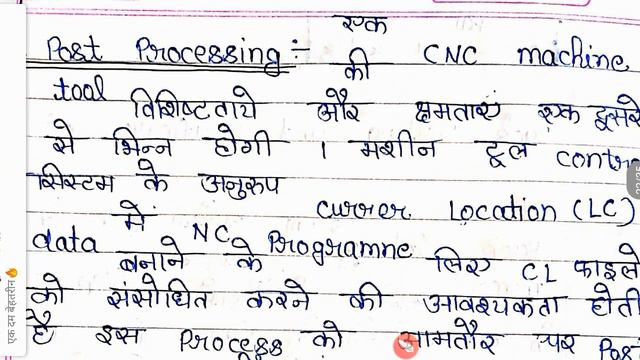 Post Processing :- एक CNC machine
की
tool विशिष्टताये और क्षमताए एक दूसरे
से भिन्न होगी । मशीन टूल contr
सिस्टम के अनुरुप
में curser Location (LC)
data बनाने NC के Programne लिए CL फाइले
को संसोधित करने की आवश्यकता होती
है इस Process को आमतौर पर Pos
एक दम बेहतरीन🔥